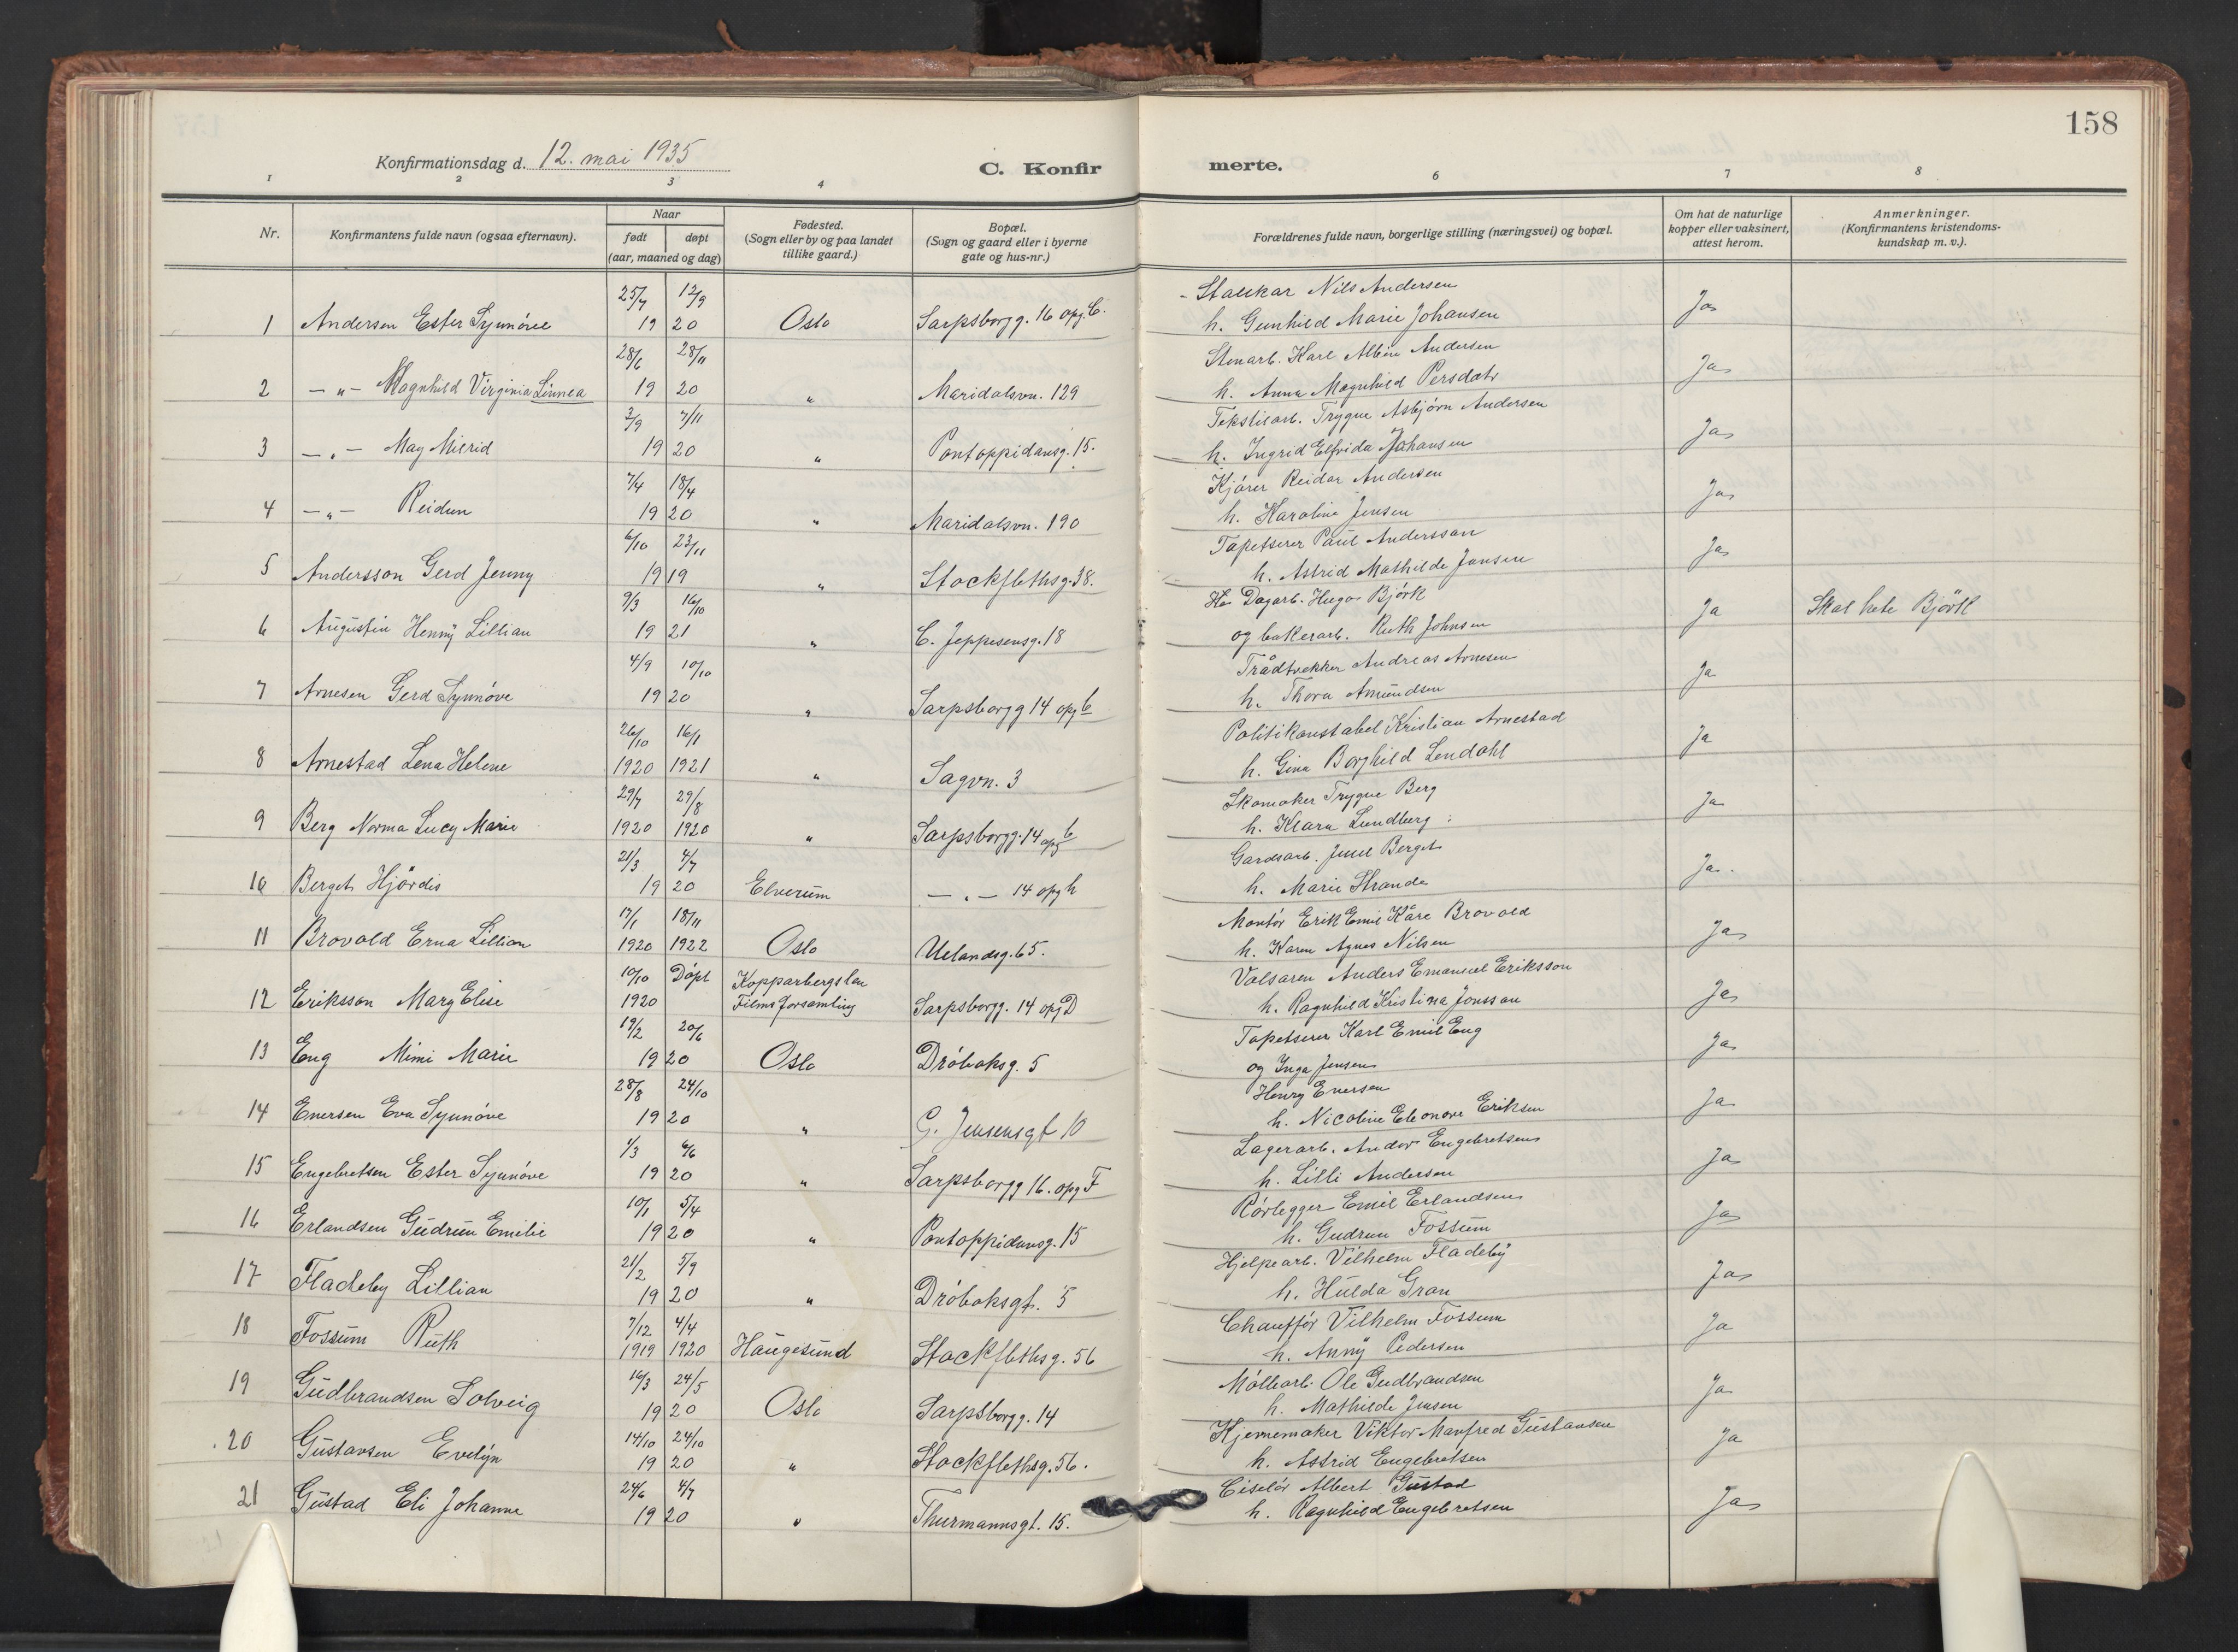 158
Konfirmationsdag d. 12. mai 1935
C. Konfir merte.
1 2 3 4 6 7 8
Nr.
Konfirmantens fulde navn (ogsaa efternavn).
Naar
født døpt
(aar, maaned og dag)
Fødested.
(Sogn eller by og paa landet
tillike gaard.)
Bopæl.
(Sogn og gaard eller i byerne
gate og hus-nr.)
Forældrenes fulde navn, borgerlige stilling (næringsvei) og bopæl.
Om hat de naturlige
kopper eller vaksinert,
attest herom.
Anmerkninger.
(Konfirmantens kristendoms-
kundskap m. v.).
25/7 12/9 Nils Andersen
1 Andersen Ester Synnöve 19 20 Oslo Sarpsborgg. 16 opg. C. h. Gunhild Marie Johansen Ja
28/6 28/11 Stenarb. Karl Albin Andersen
2 -"- Magnhild Virginia Linnea 19 20 " Maridalsvn. 129 h. Anna Magnhild Persdatr Ja
3/9 7/11 Tekstilarb. Trygve Asbjörn Andersen
3 -"- May Milrid 19 20 " Pontoppidansg. 15. h. Ingrid Elfrida Johansen Ja
7/4 18/4 Kjörer Reidar Andersen
4 -"- Reidun 19 20 " Maridalsvn. 190 h. Karoline Jensen Ja
6/10 23/11 Tapetserer Paul Andersson
5 Andersson Gerd Jenny 19 19 " Stockflethsg. 38. h. Astrid Mathilde Jansen Ja
9/3 16/10 Dagarb. Hugo Björk
6 Augustin Henny Lillian 19 21 " C. Jeppesensg. 18 og bakerarb. Ruth Johnsen Ja Skal hete Björk
4/9 10/10 Trådtrekker Andreas Arnesen
7 Arnesen Gerd Synnöve 19 20 " Sarpsborgg 14 opg b h. Thora Amundsen Ja
26/10 16/1 Politikonstabel Kristian Arnestad
8 Arnestad Lena Helene 1920 1921 " Sagvn. 3 h. Gina Borghild Lendahl Ja
29/7 29/8 Skomaker Trygve Berg
9 Berg Norma Lucy Marie 1920 1920 " Sarpsborgg. 14 opg b h. Klara Lundberg Ja
21/3 4/7 Gardsarb. Juul Berget
10 Berget Hjördis 19 20 Elverum -"- 14 opg h h. Marie Strande Ja.
17/1 18/11 Montör Erik Emil Kåre Brovold
11 Brovold Erna Lillian 1920 1922 Oslo Uelandsg. 65. h. Karen Agnes Nilsen Ja
10/10 Döpt Kopparbergslen Valsaren Anders Emanuel Eriksson
12 Eriksson Mary Elise 1920 Filmsforsamling Sarpsborgg. 14 opg D h. Ragnhild Kristina Jonsson Ja
19/2 20/6 Tapetserer Karl Emil Eng
13 Eng Mimi Marie 19 20 Oslo Dröbaksg. 5 og Inga Jensen Ja
28/8 24/10 Henry Enersen
14 Enersen Eva Synnöve 19 20 " G. Jensensgt 10 h. Nicoline Eleonore Eriksen Ja
1/3 6/6 Lagerarb. Andor Engebretsen
15 Engebretsen Ester Synnöve 19 20 " Sarpsborgg 16. opg F h. Lilli Andersen Ja
10/1 5/4 Rörlegger Emil Erlandsen
16 Erlandsen Gudrun Emilie 19 20 " Pontoppidansg. 15 h. Gudrun Fossum Ja
21/2 5/9 Hjelpearb. Vilhelm Fladeby
17 Fladeby Lillian 19 20 " Dröbaksgt. 5 h. Hulda Gran Ja
7/12 4/4 Chaufför Vilhelm Fossum
18 Fossum Ruth 1919 1920 Haugesund Stockflethsg. 56 h. Anny Pedersen Ja
16/3 24/5 Möllearb. Ole Gudbrandsen
19 Gudbrandsen Solveig 19 20 Oslo Sarpsborgg. 14 h. Mathilde Jensen Ja
14/10 24/10 Kjernemaker Viktor Manfred Gustavsen
20 Gustavsen Evelyn 19 20 " Stockflethsg. 56. h. Astrid Engebretsen Ja
24/6 4/7 Ciselör Albert Gustad
21 Gustad Eli Johanne 19 20 " Thurmannsgt. 15. h. Ragnhild Engebretsen Ja